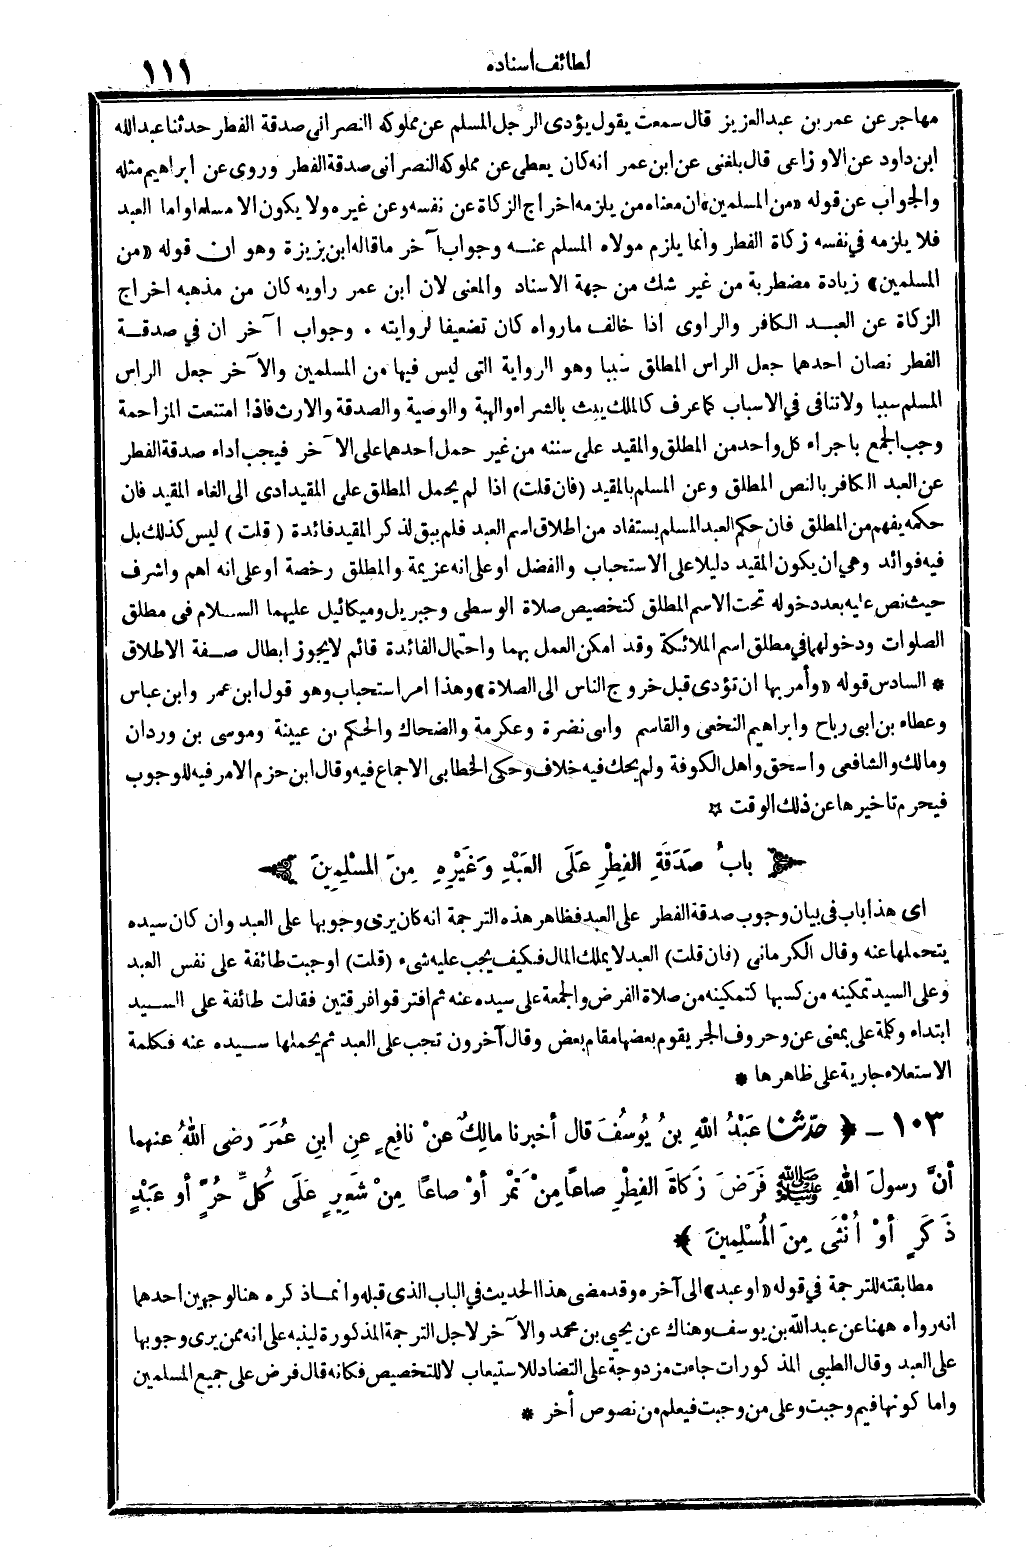 لطائف أسناده
١١١
مهاجر عن عمر بن عبد العزيز قال سمعت يقول يؤدى الرجل المسلم عن مملوكه النصرانى صدقة الفطر حدثنا عبد الله
ابن داود عن الاوزاعى قال بلغنى عن ابن عمر انه كان يعطى عن مملوكه النصرانى صدقة الفطر وروى عن ابراهيم مثله
والجواب عن قوله «من المسلمين» ان معناه من يلزمه اخراج الزكاة عن نفسه وعن غيره ولا يكون الا مسلما واما العبد
فلا يلزمه فى نفسه زكاة الفطر وانما يلزم مولاه المسلم عنه وجواب آخر ما قاله ابن بزيزة وهو ان قوله «من
المسلمين» زيادة مضطربة من غير شك من جهة الاسناد والمعنى لان ابن عمر راويه كان من مذهبه اخراج
الزكاة عن العبد الكافر والراوى اذا خالف ما رواه كان تضعيفا لروايته . وجواب آخر ان فى صدقة
الفطر نصان احدهما جعل الراس المطلق سببا وهو الرواية التى ليس فيها من المسلمين والآخر جعل الراس
المسلم سببا ولا تنافى فى الاسباب كما عرف كالملك يثبت بالشراء والهبة والوصية والصدقة والارث فاذا امتنعت المزاحمة
وجب الجمع باجراء كل واحد من المطلق والمقيد على سننه من غير حمل احدهما على الآخر فيجب اداء صدقة الفطر
عن العبد الكافر بالنص المطلق وعن المسلم بالمقيد (فان قلت) اذا لم يحمل المطلق على المقيد ادى الى الغاء المقيد فان
حكمه يفهم من المطلق فان حكم العبد المسلم يستفاد من اطلاق اسم العبد فلم يبق لذكر المقيد فائدة (قلت) ليس كذلك بل
فيه فوائد وهى ان يكون المقيد دليلا على الاستحباب والفضل او على انه عزيمة والمطلق رخصة او على انه اهم واشرف
حيث نص عليه بعد دخوله تحت الاسم المطلق كتخصيص صلاة الوسطى وجبريل وميكائيل عليهما السلام فى مطلق
الصلوات ودخولهما فى مطلق اسم الملائكة وقد امكن العمل بهما واحتمال الفائدة قائم لا يجوز ابطال صفة الاطلاق
* السادس قوله «وأمر بها ان تؤدى قبل خروج الناس الى الصلاة» وهذا امر استحباب وهو قول ابن عمر وابن عباس
وعطاء بن ابى رباح وابراهيم النخعى والقاسم وابى نضرة وعكرمة والضحاك والحكم بن عيينة وموسى بن وردان
ومالك والشافعى واسحق واهل الكوفة ولم يحك فيه خلاف وحكى الخطابى الاجماع فيه وقال ابن حزم الامر فيه للوجوب
فيحرم تاخيرها عن ذلك الوقت ☆
بابُ صَدَقَةِ الفِطْرِ عَلَى العَبْدِ وَغَيْرِهِ مِنَ المُسْلِمِينَ
اى هذا باب فى بيان وجوب صدقة الفطر على العبد فظاهر هذه الترجمة انه كان يرى وجوبها على العبد وان كان سيده
يتحملها عنه وقال الكرمانى (فان قلت) العبد لا يملك المال فكيف يجب عليه شىء (قلت) اوجبت طائفة على نفس العبد
وعلى السيد تمكينه من كسبها كتمكينه من صلاة الفرض والجمعة على سيده عنه ثم افترقوا فرقتين فقالت طائفة على السيد
ابتداء وكلمة على بمعنى عن وحروف الجر يقوم بعضها مقام بعض وقال آخرون تجب على العبد ثم يحملها سيده عنه فكلمة
الاستعلاء جارية على ظاهرها *
١٠٣ ـ ﴿ حدّثنا عَبْدُ اللهِ بنُ يُوسُفَ قال أخبرنا مالِكٌ عنْ نافِعٍ عنِ ابنِ عُمَرَ رضى اللهُ عنهما
أنَّ رسولَ اللهِ ﷺ فَرَضَ زَكاةَ الفِطْرِ صاعًا مِنْ تَمْرٍ أوْ صاعًا مِنْ شَعِيرٍ عَلَى كُلِّ حُرٍّ أو عَبْدٍ
ذَكَرٍ أوْ أُنْثَى مِنَ المُسْلِمِينَ ﴾
مطابقته للترجمة فى قوله «او عبد» الى آخره وقد مضى هذا الحديث فى الباب الذى قبله وانما ذكره هنا لوجهين احدهما
انه رواه ههنا عن عبد الله بن يوسف وهناك عن يحيى بن محمد والآخر لاجل الترجمة المذكورة لينبه على انه ممن يرى وجوبها
على العبد وقال الطيبى المذكورات جاءت مزدوجة على التضاد للاستيعاب لا للتخصيص فكانه قال فرض على جميع المسلمين
واما كونها فيم وجبت وعلى من وجبت فيعلم من نصوص أخر *